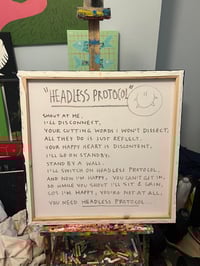 "HEADLESS PROTOCOL"
SHOUT AT ME,
I'LL DISCONNECT,
YOUR CUTTING WORDS I WON'T DISSECT,
ALL THEY DO IS JUST REFLECT,
YOUR HAPPY HEART IS DISCONTENT,
I'LL GO ON STANDBY,
STAND BY A WALL.
I'LL SWITCH ON HEADLESS PROTOCOL,
AND NOW I'M HAPPY, YOU CAN'T GET IN,
SO WHILE YOU SHOUT I'LL SIT & GRIN,
COS I'M HAPPY, YOU'RE NOT AT ALL,
YOU NEED HEADLESS PROTOCOL...